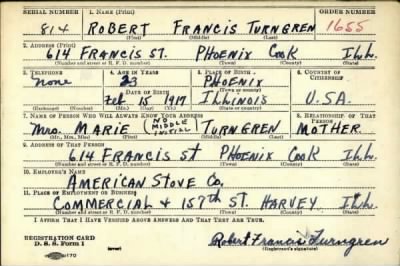 SERIAL NUMBER 1. NAME (Print) ORDER NUMBER
814 ROBERT FRANCIS TURNGREN 1655
(First) (Middle) (Last)
2. ADDRESS (Print)
614 FRANCIS ST. PHOENIX COOK ILL.
(Number and street or R. F. D. number) (Town) (County) (State)
3. TELEPHONE 4. AGE IN YEARS 5. PLACE OF BIRTH 6. COUNTRY OF CITIZENSHIP
None 23 PHOENIX
DATE OF BIRTH (Town or county)
Feb 15 1917 ILLINOIS U.S.A.
(Exchange) (Number) (Mo.) (Day) (Yr.) (State or country)
7. NAME OF PERSON WHO WILL ALWAYS KNOW YOUR ADDRESS 8. RELATIONSHIP OF THAT PERSON
Mrs. MARIE (NO MIDDLE INITIAL) TURNGREN MOTHER
(Mr., Mrs., Miss) (First) (Middle) (Last)
9. ADDRESS OF THAT PERSON
614 FRANCIS St PHOENIX COOK ILL.
(Number and street or R. F. D. number) (Town) (County) (State)
10. EMPLOYER'S NAME
AMERICAN STOVE CO.
11. PLACE OF EMPLOYMENT OR BUSINESS
COMMERCIAL & 157TH ST. HARVEY ILL.
(Number and street or R. F. D. number) (Town) (County) (State)
I AFFIRM THAT I HAVE VERIFIED ABOVE ANSWERS AND THAT THEY ARE TRUE.
REGISTRATION CARD
D. S. S. Form 1 (over) Robert Francis Turngren
(Registrant's signature)